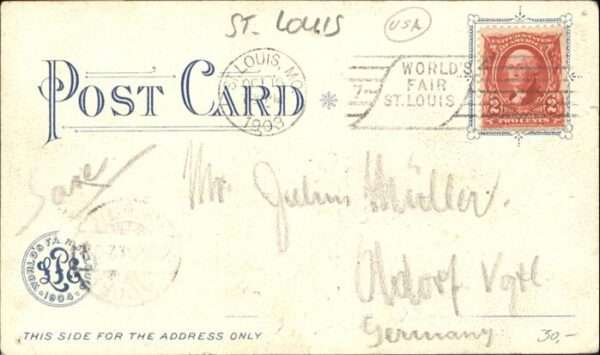 ST. LOUIS
USA
ST. LOUIS, MO.
OCT
1903
WORLD'S
FAIR
ST. LOUIS
7
2 2
TWO CENTS
POST CARD
Mr. Julius Müller.
Adorf Vgtl
Germany
WORLD'S FAIR ST. LOUIS
1904
THIS SIDE FOR THE ADDRESS ONLY
30,-